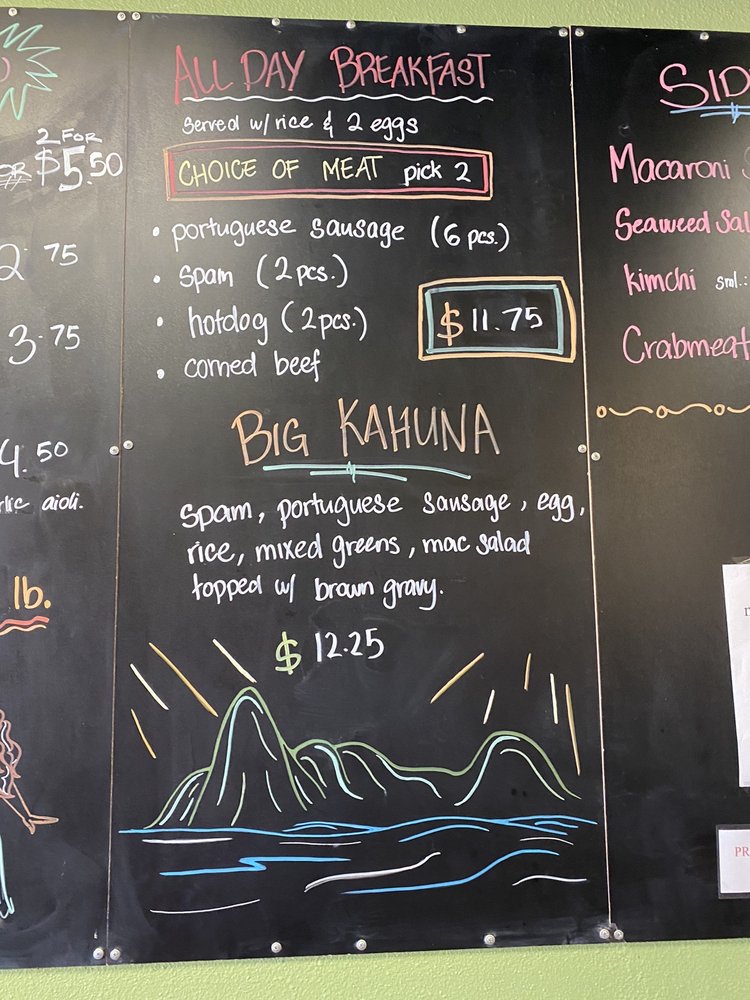 2 FOR
OR $5.50
2.75
3.75
4.50
aioli.
lb.
ALL DAY BREAKFAST
Served w/ rice & 2 eggs
CHOICE OF MEAT pick 2
• portuguese sausage (6 pcs.)
• spam (2 pcs.)
• hotdog (2 pcs.)
• corned beef
$ 11.75
BIG KAHUNA
spam, portuguese sausage, egg,
rice, mixed greens, mac salad
topped w/ brown gravy.
$ 12.25
SID
Macaroni S
Seaweed Sal
kimchi sml.:
Crabmeat
PR